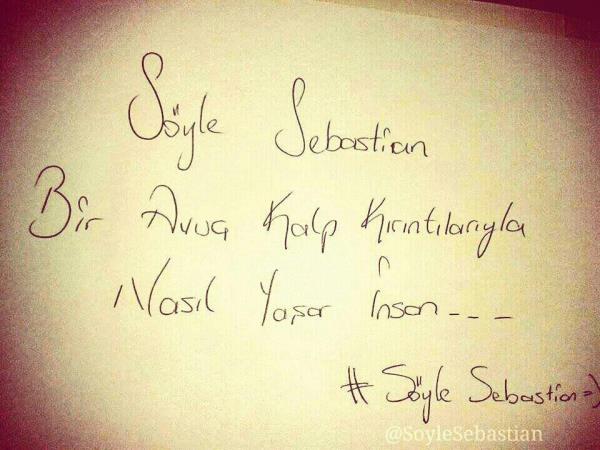 Söyle Sebastian
Bir Avuç Kalp Kırıntılarıyla
Nasıl Yaşar İnsan---
# Söyle Sebastian=)
@SoyleSebastian